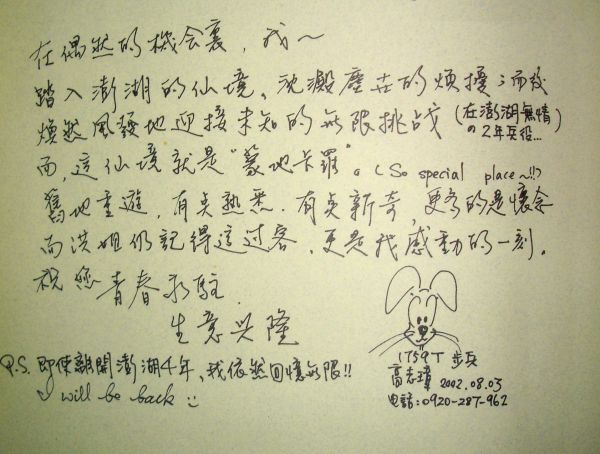 在偶然的機会裏，我~
踏入澎湖的仙境，沈澱塵世的煩擾；而後
煥然風發地迎接未知的無限挑战 (在澎湖無情
の2年兵役...)
而，這仙境就是"蒙地卡羅"。(So special place~!!)
舊地重遊，有点熟悉．有点新奇，更多的是懷念
而洪姐仍記得這过客，更是我感動的一刻。
祝您青春永駐．
生意兴隆
P.S. 即使離開澎湖4年，我依然回憶無限!!
I will be back
1759T 步兵
高志瑋 2002.08.03
電話:0920-287-962